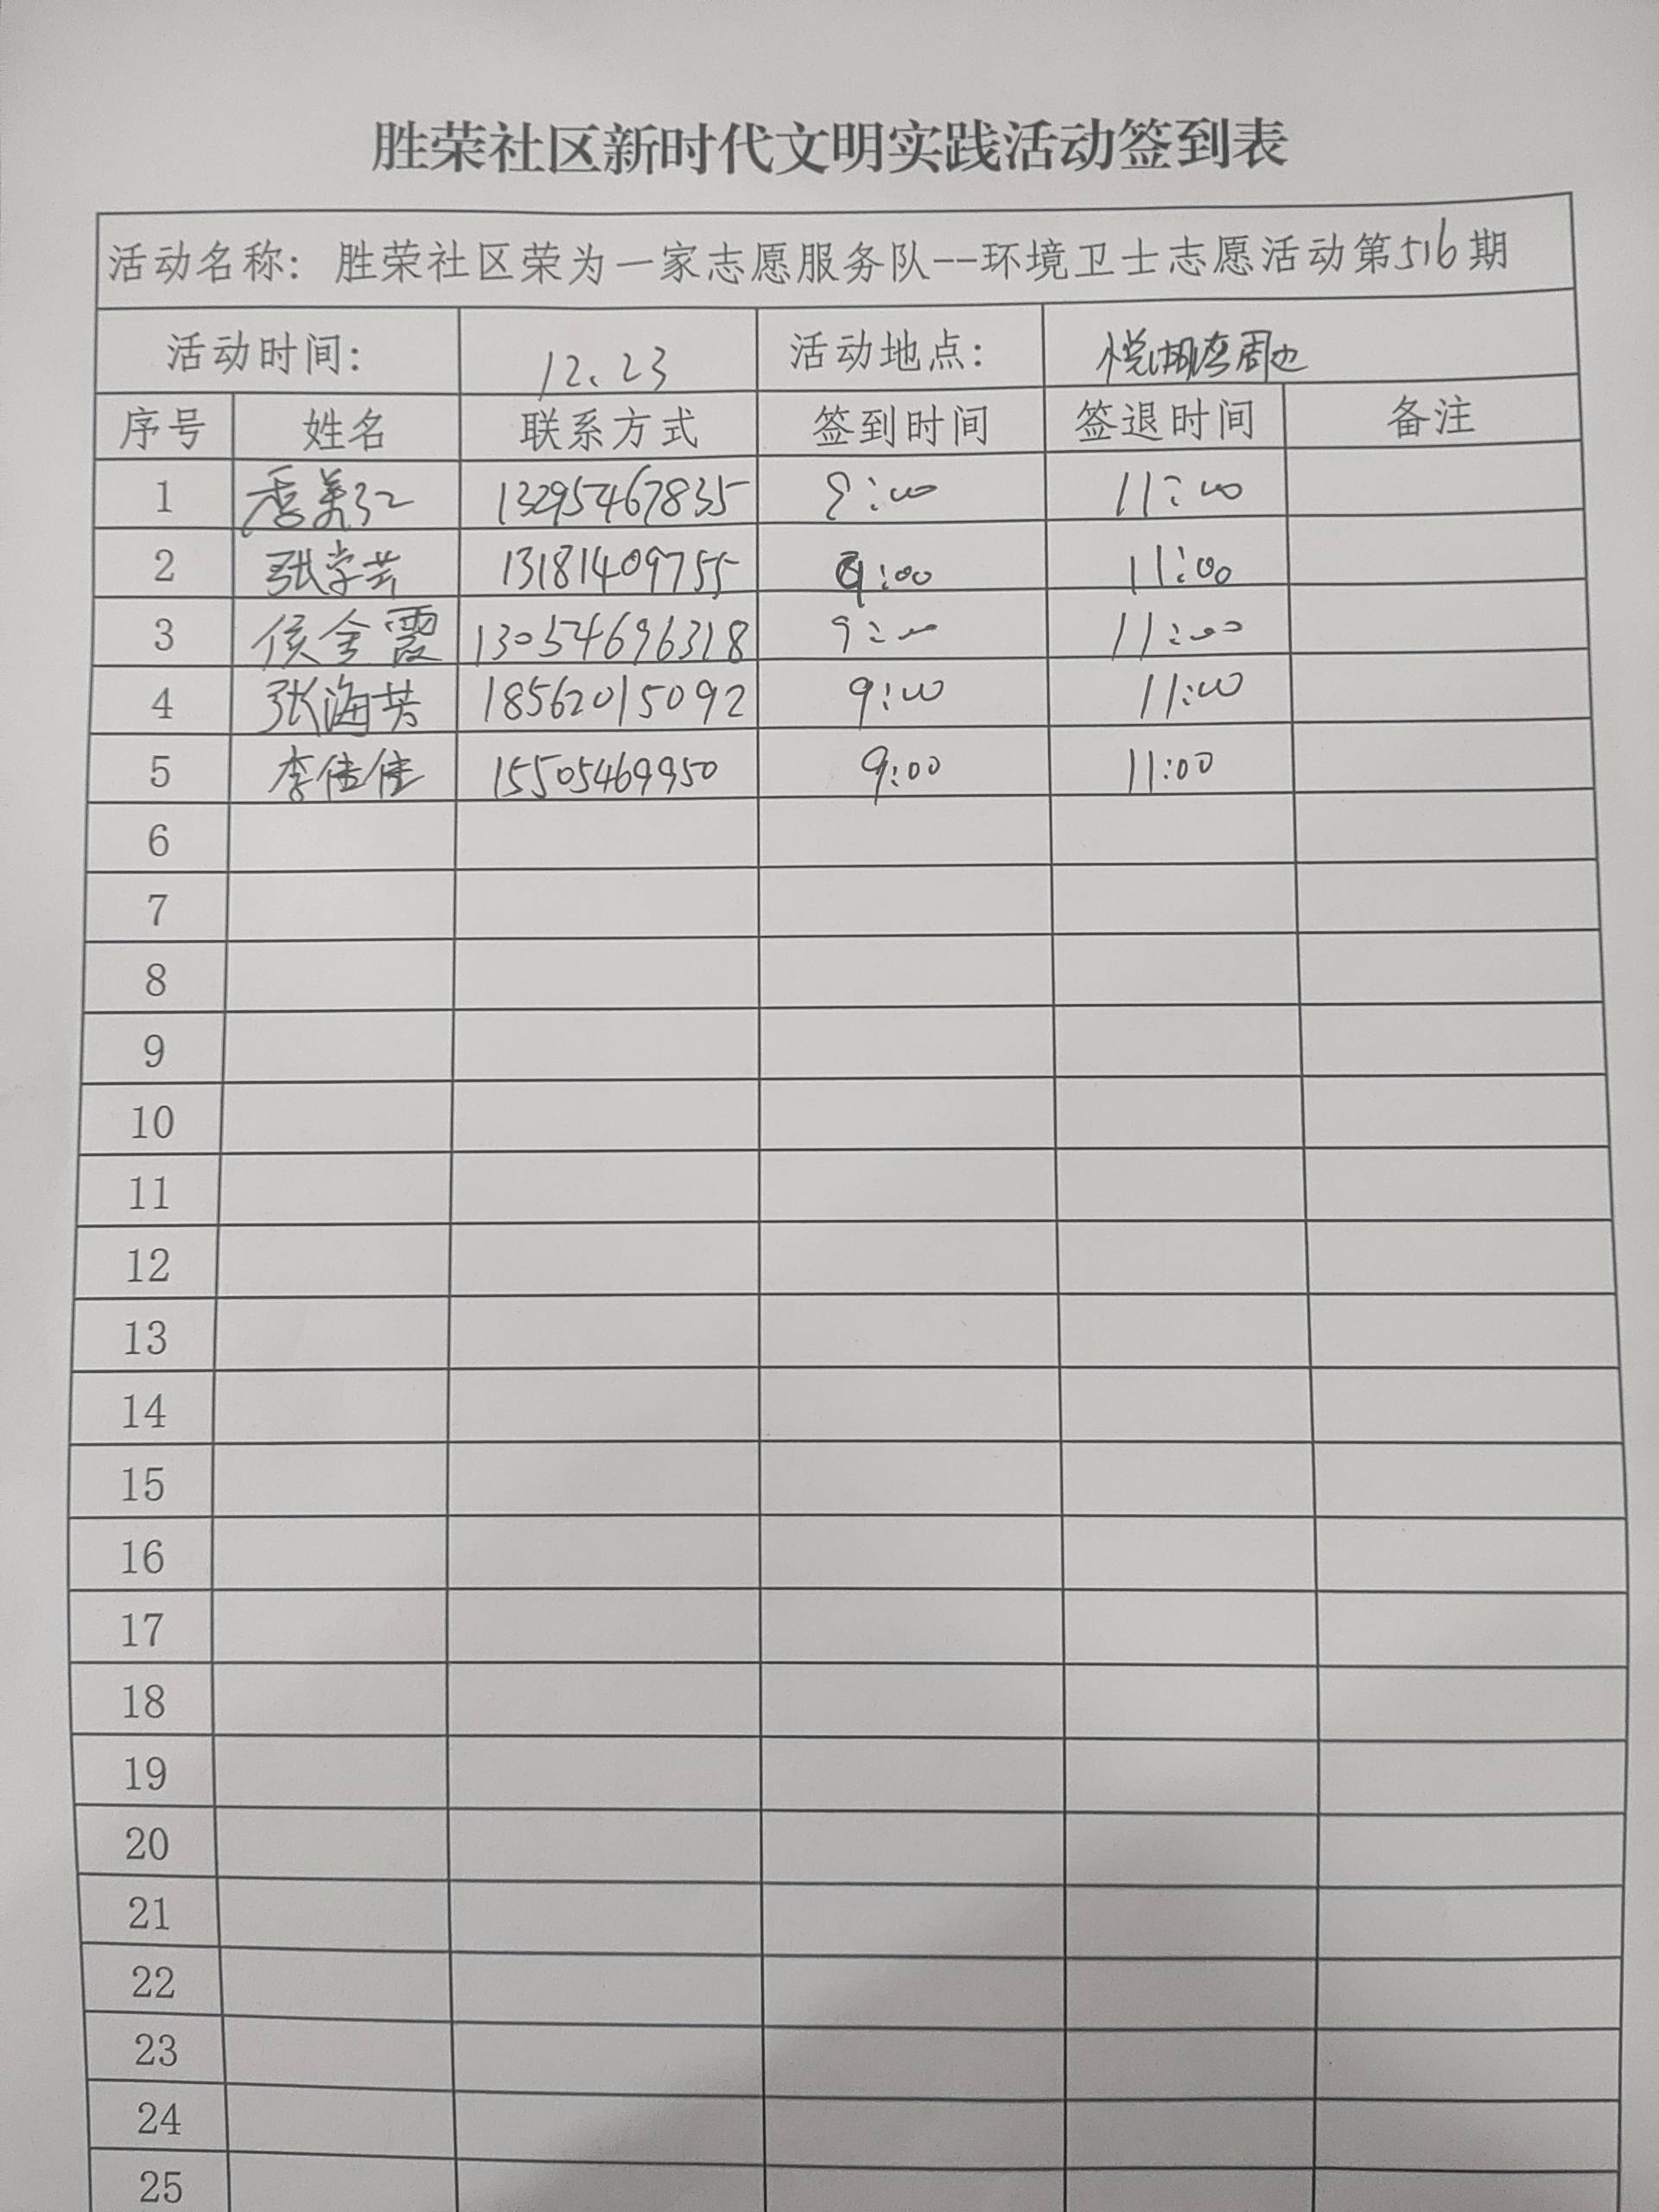 胜荣社区新时代文明实践活动签到表
活动名称：胜荣社区荣为一家志愿服务队--环境卫士志愿活动第516期
活动时间： 12.23 活动地点： 悦湖湾周边
序号 姓名 联系方式 签到时间 签退时间 备注
1 季美江 13295467835 9:00 11:00
2 张学芸 13181409755 9:00 11:00
3 侯金霞 13054696318 9:00 11:00
4 张海英 18562015092 9:00 11:00
5 李佳佳 15505469950 9:00 11:00
6
7
8
9
10
11
12
13
14
15
16
17
18
19
20
21
22
23
24
25